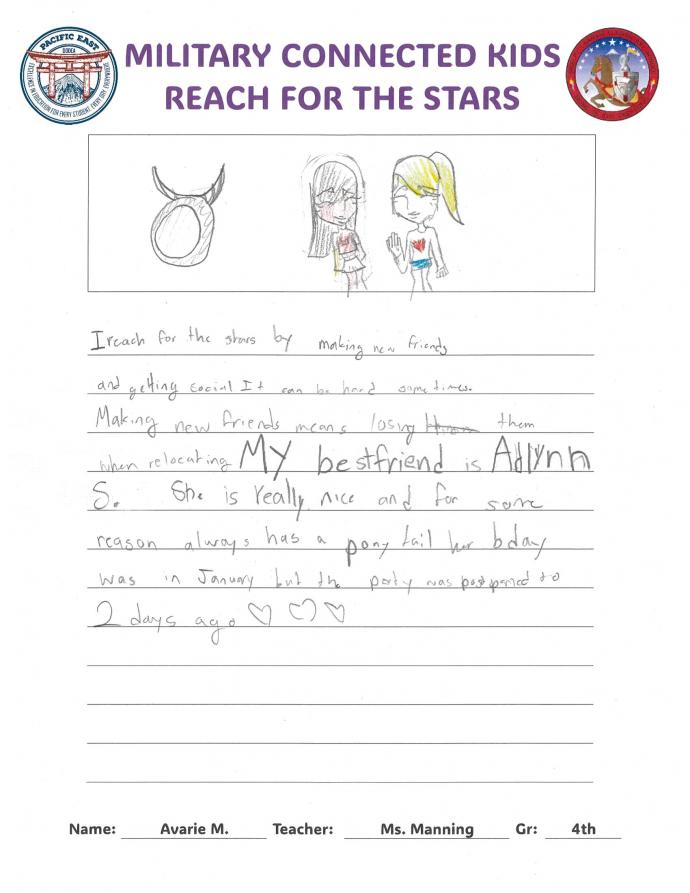 PACIFIC EAST
DODEA
EXCELLENCE IN EDUCATION FOR EVERY STUDENT, EVERY DAY, EVERYWHERE
MILITARY CONNECTED KIDS
REACH FOR THE STARS
I reach for the stars by making new friends
and getting social It can be hard some times.
Making new friends means losing them
when relocating MY bestfriend is Adlynn
S. She is really nice and for some
reason always has a pony tail her bday
was in January but the party was postponed to
2 days ago
Name: Avarie M. Teacher: Ms. Manning Gr: 4th